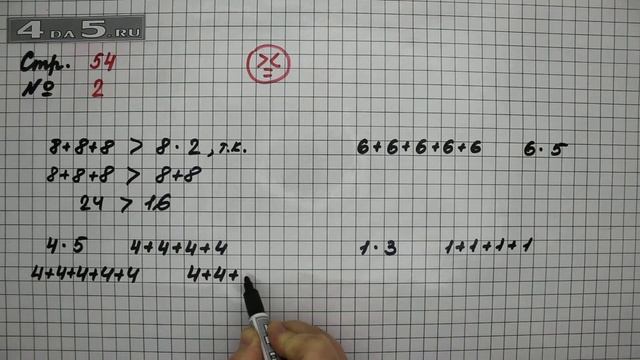 4 DA 5.RU
Стр. 54
><
=
№ 2
8+8+8 > 8·2, т.к.
8+8+8 > 8+8
24 > 16
6+6+6+6+6 6·5
4·5 4+4+4+4
4+4+4+4+4 4+4+
1·3 1+1+1+1